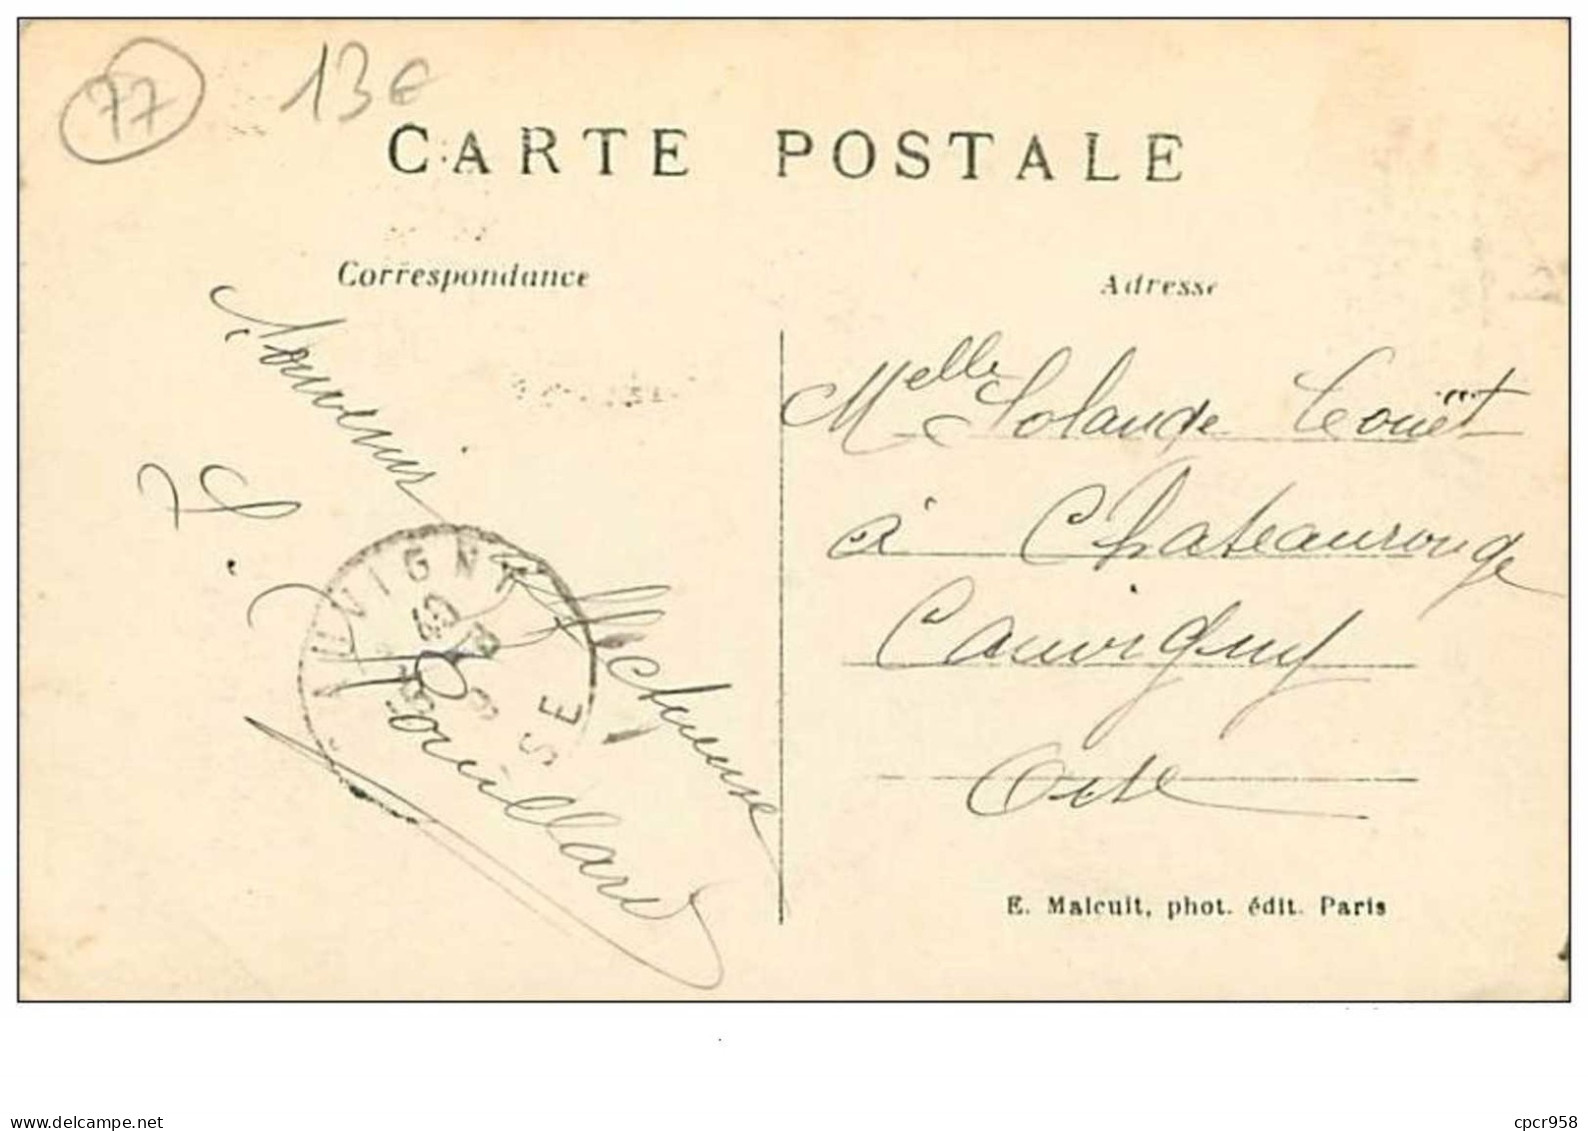 77
13€
CARTE POSTALE
Correspondance
Adresse
Souvenir affectueuse
L. Rouillard
Melle Solange Couët
à Chateaurouge
Cauvigny
Oise
CAUVIGNY
OISE
E. Malcuit, phot. édit. Paris
www.delcampe.net
cpcr958